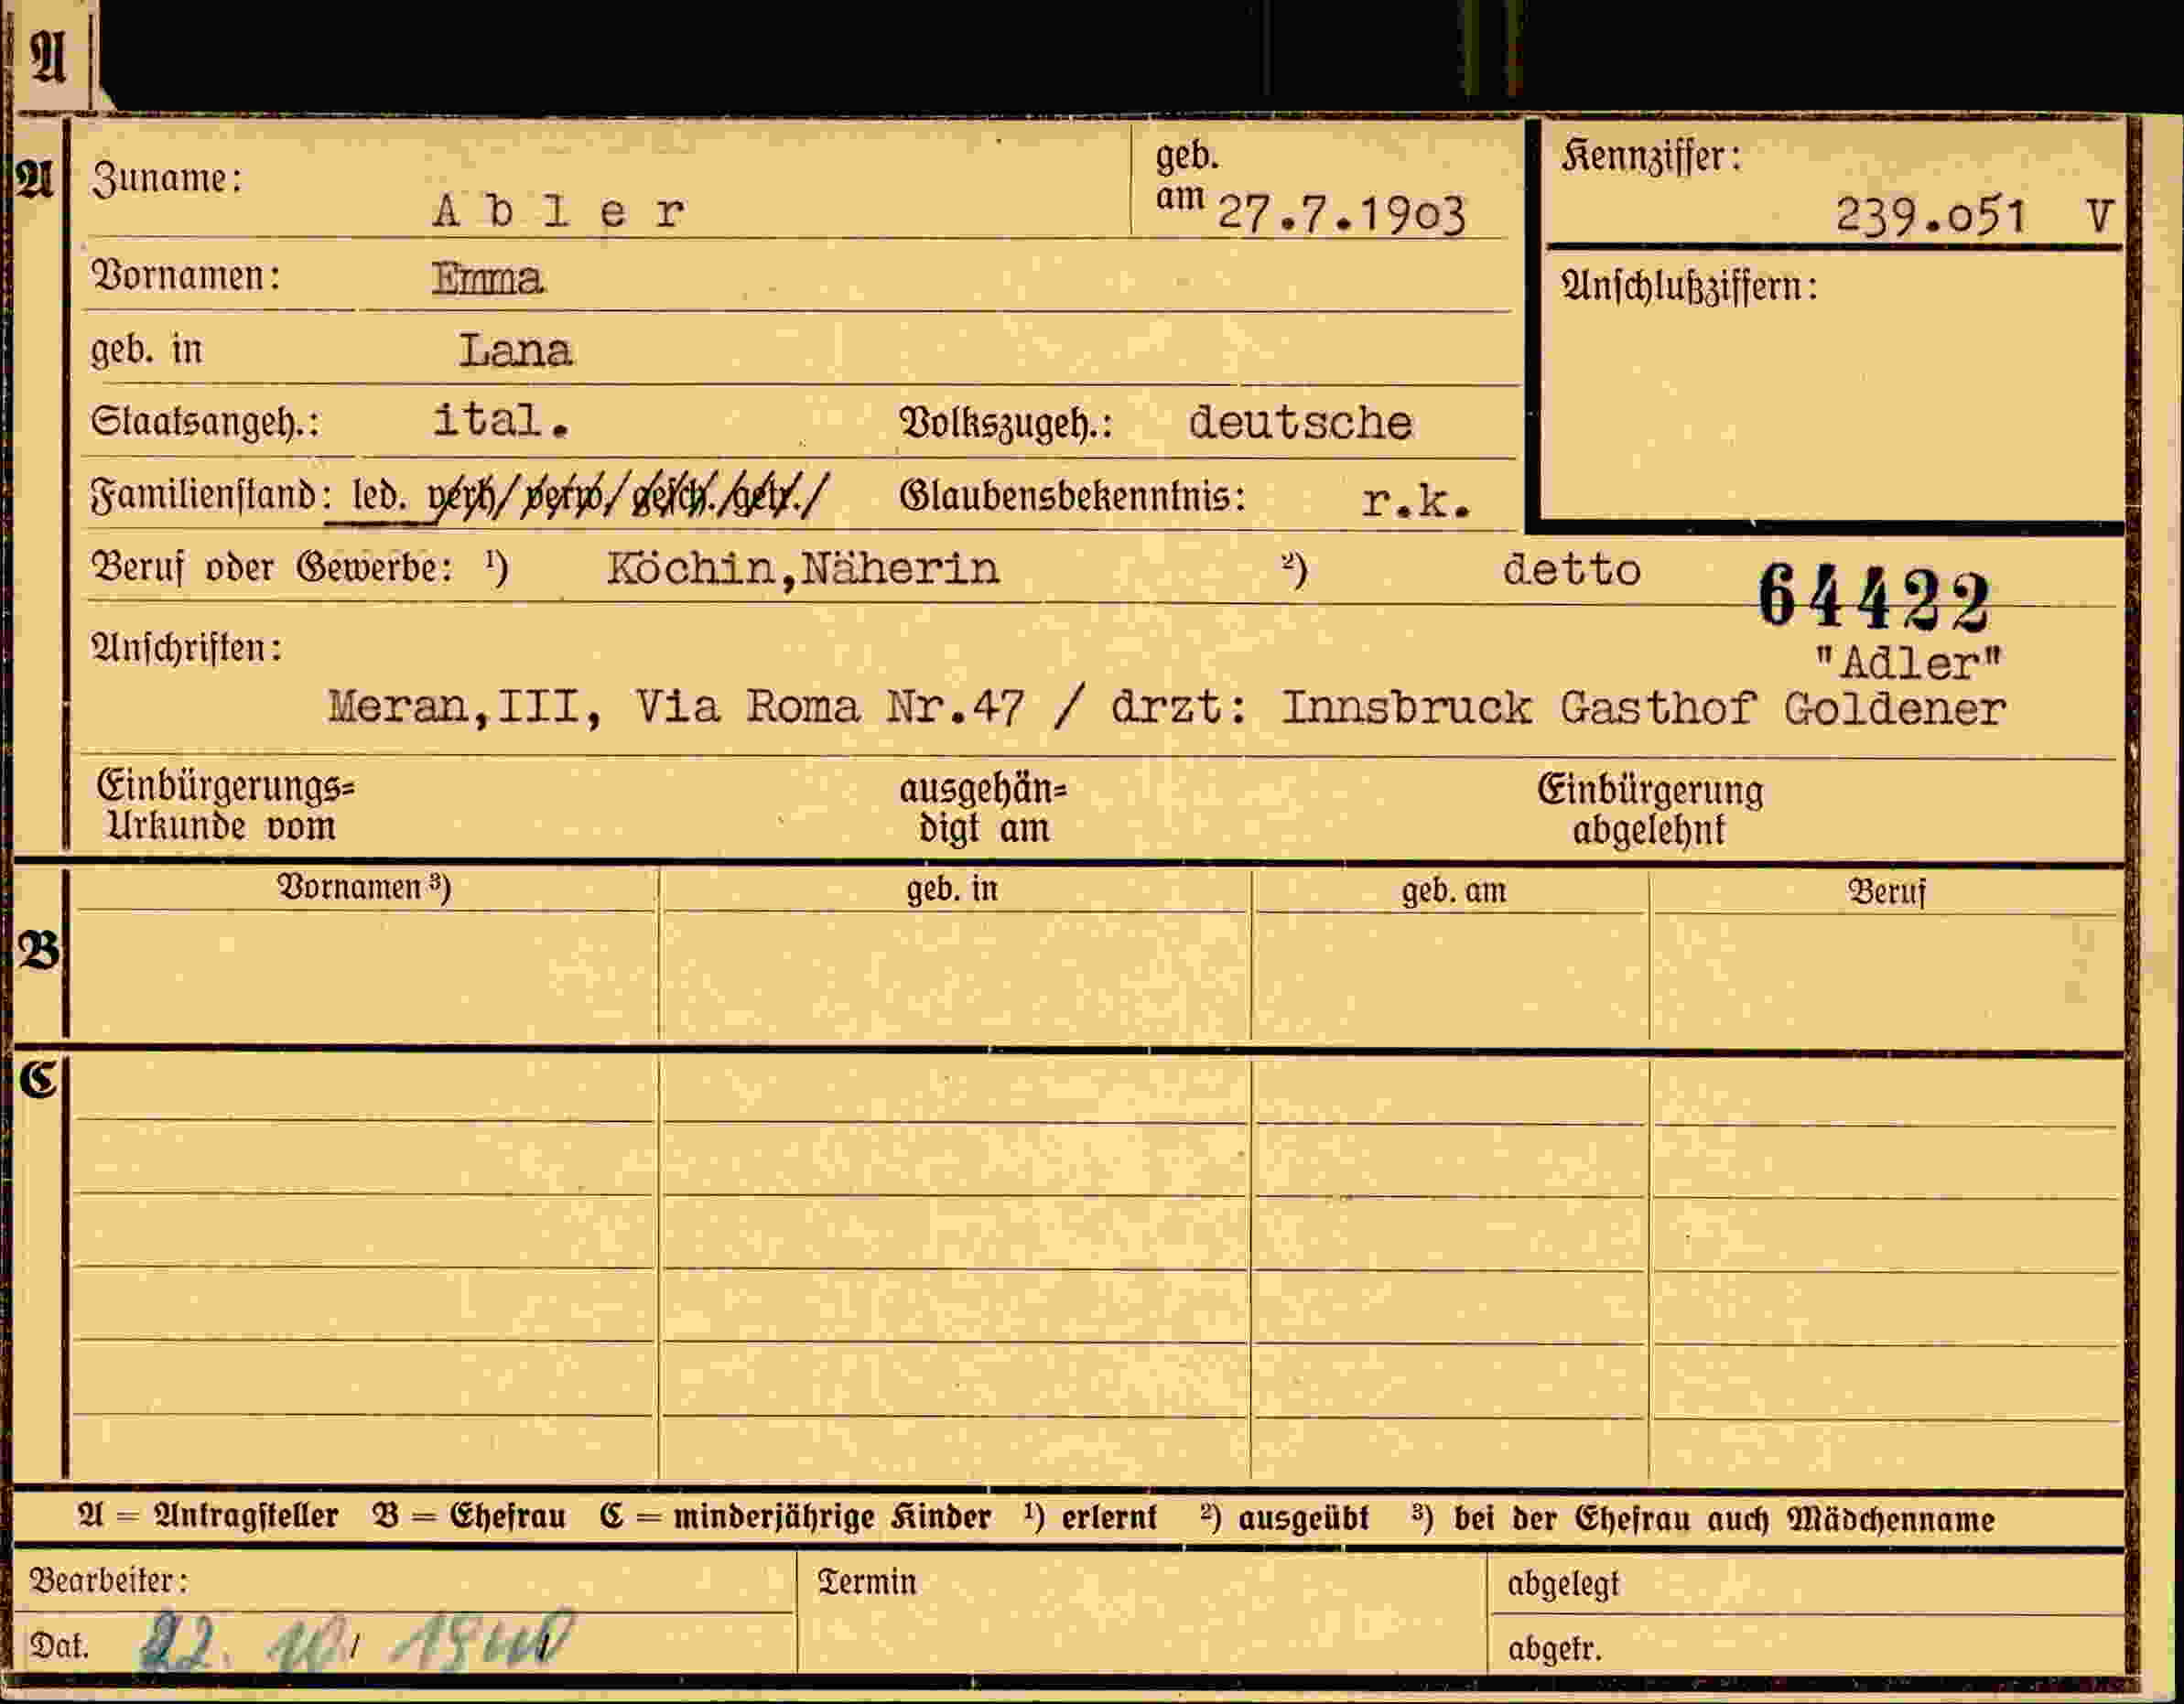 A
A Zuname: Abler geb. am 27.7.1903 Kennziffer: 239.051 V
Vornamen: Emma Anschlußziffern:
geb. in Lana
Staatsangeh.: ital. Volkszugeh.: deutsche
Familienstand: led. verh/ verw/ gesch./getr./ Glaubensbekenntnis: r.k.
Beruf oder Gewerbe: ¹) Köchin,Näherin ²) detto 64422
Anschriften: "Adler"
Meran,III, Via Roma Nr.47 / drzt: Innsbruck Gasthof Goldener
Einbürgerungs= ausgehän= Einbürgerung
Urkunde vom digt am abgelehnt
Vornamen ³) geb. in geb. am Beruf
B
C
A = Antragsteller B = Ehefrau C = minderjährige Kinder ¹) erlernt ²) ausgeübt ³) bei der Ehefrau auch Mädchenname
Bearbeiter: Termin abgelegt
Dat. 22. 10. 1940 abgetr.